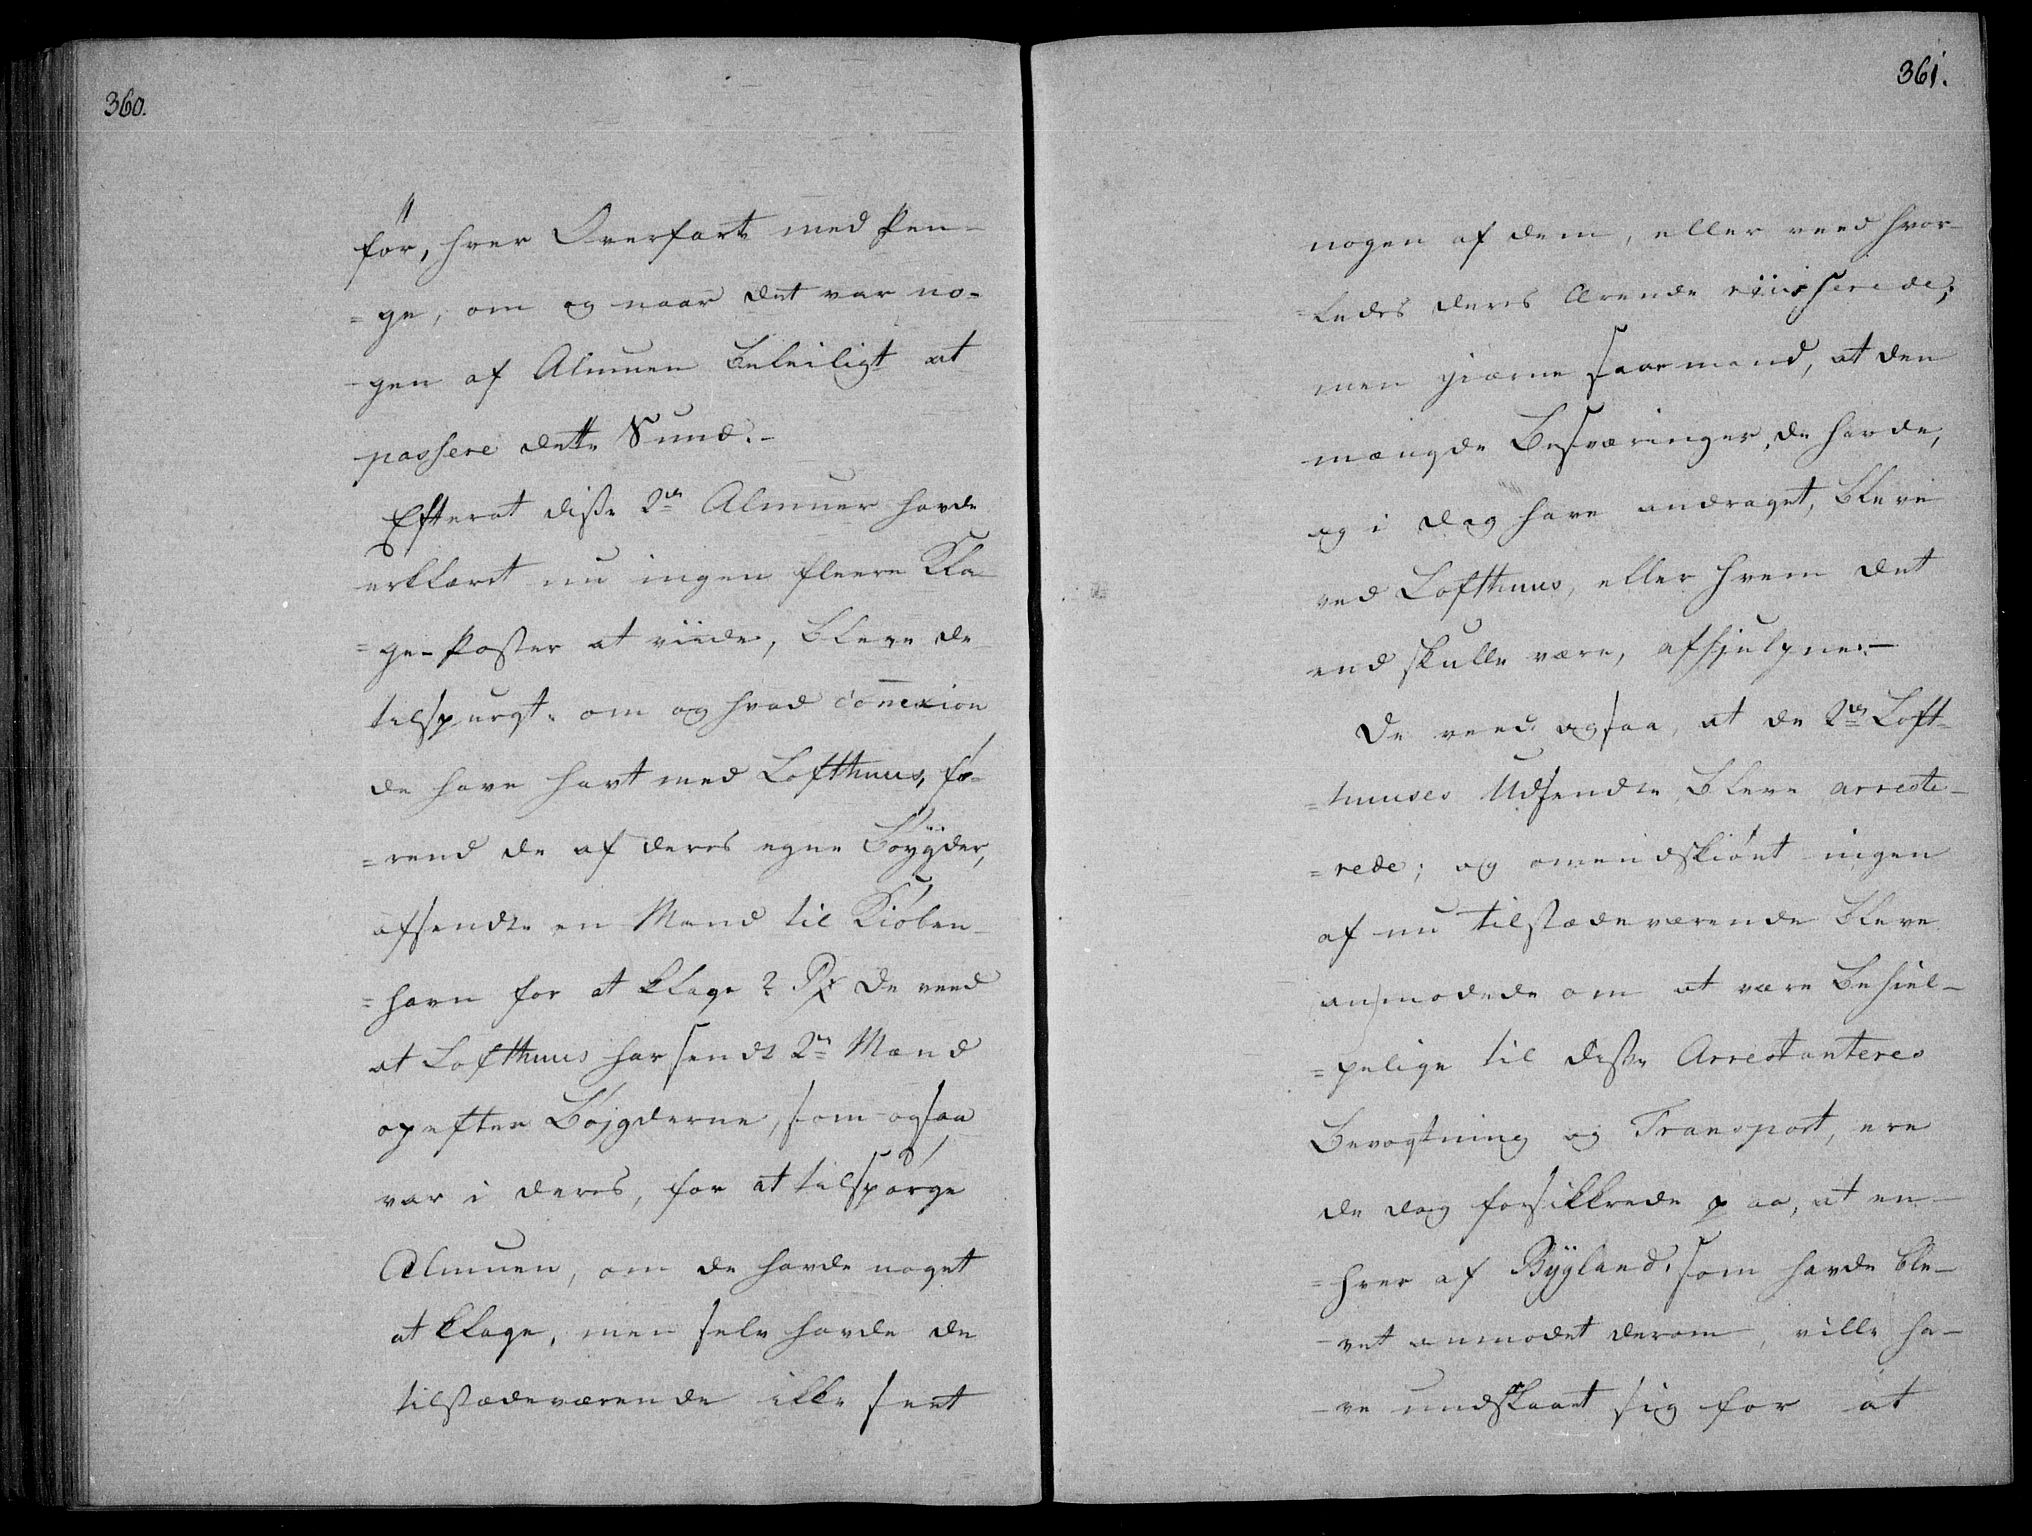 360.
før, hver Overfart med Pen-
=ge, om og naar det var no-
-gen af Almuen beleiligt at
passere dette Sund.-
Efterat disse 2de Almuer havde
erklæret nu ingen fleere Kla-
=ge-Poster at viide, bleve de
tilspurgt: om og hvad connexion
de have havt med Lofthuus, fø-
=rend de af deres egne Bøÿgder,
afsendte en Mand til Kiøben-
=havn for at klage? Rx de veed
at Lofthuus har sendt 2de Mænd
op efter Bøjgderne, som ogsaa
var i deres, for at tilspørge
Almuen, om de havde noget
at klage, men selv havde de
tilstædeværende ikke seet
361.
nogen af dem, eller veed hvor-
=ledes deres Ærende
men gierne saae mand, at den
mængde Besværinger, de havde,
og i dag have andraget, bleve
ved Lofthuus, eller hvem det
end skulle være, afhjulpne.-
De veed ogsaa, at de 2de Loft-
=huuses Udsendte bleve arreste-
=rede; og omendskiønt ingen
af nu tilstædeværende bleve
anmodede om at være behiel-
=pelige til disse Arrestanteres
Bevogtning og Transport, ere
de dog forsikkrede paa, at en-
=hver af Bÿgland, som havde ble-
-vet anmodet derom, ville ha-
-ve undslaaet sig for at